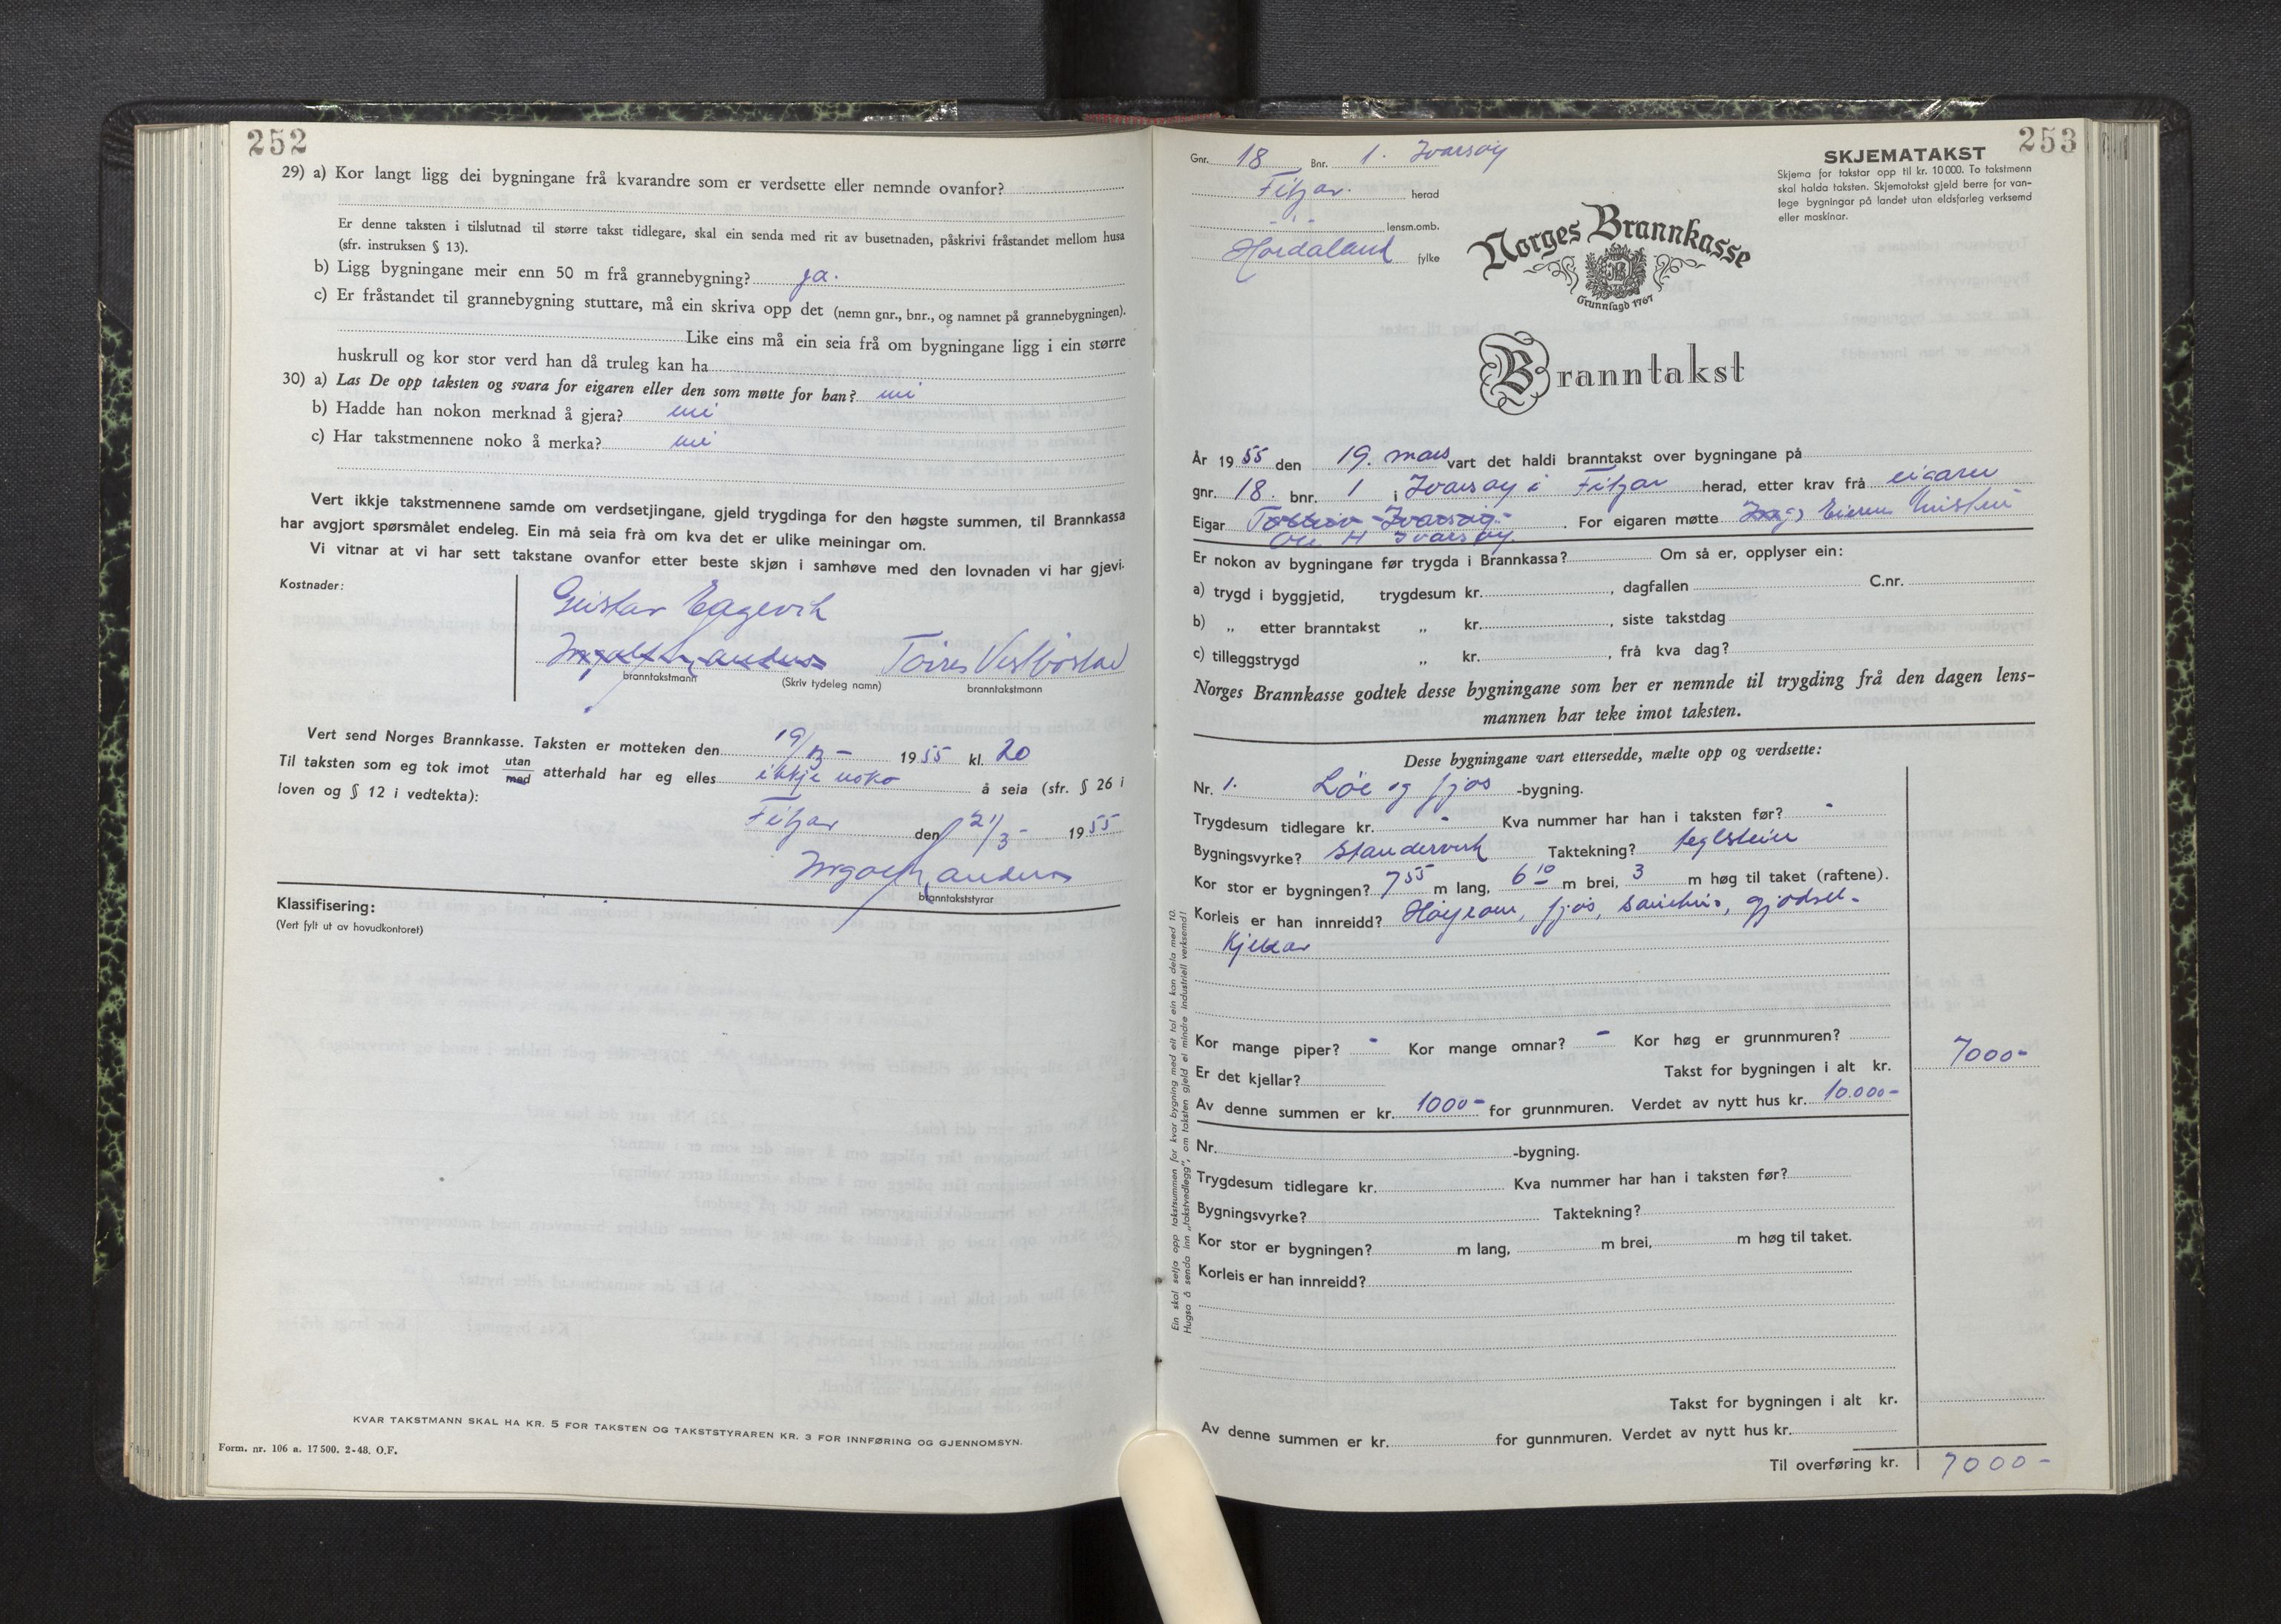 252
29) a) Kor langt ligg dei bygningane frå kvarandre som er verdsette eller nemnde ovanfor?
Er denne taksten i tilslutnad til større takst tidlegare, skal ein senda med rit av busetnaden, påskrivi fråstandet mellom husa
(sfr. instruksen § 13).
b) Ligg bygningane meir enn 50 m frå grannebygning? ja.
c) Er fråstandet til grannebygning stuttare, må ein skriva opp det (nemn gnr., bnr., og namnet på grannebygningen).
Like eins må ein seia frå om bygningane ligg i ein større
huskrull og kor stor verd han då truleg kan ha
30) a) Las De opp taksten og svara for eigaren eller den som møtte for han?
b) Hadde han nokon merknad å gjera?
c) Har takstmennene noko å merka?
Vert ikkje takstmennene samde om verdsetjingane, gjeld trygdinga for den høgste summen, til Brannkassa
har avgjort spørsmålet endeleg. Ein må seia frå om kva det er ulike meiningar om.
Vi vitnar at vi har sett takstane ovanfor etter beste skjøn i samhøve med den lovnaden vi har gjevi.
Kostnader:
Gustav
branntakstmann (Skriv tydeleg namn) branntakstmann
Vert send Norges Brannkasse. Taksten er motteken den 19/3 - 1955 kl. 20
Til taksten som eg tok imot utan med atterhald har eg elles ikkje noko å seia (sfr. § 26 i
loven og § 12 i vedtekta):
Fitjar den 21/3 - 1955
branntakststyrar
Klassifisering:
(Vert fylt ut av hovudkontoret)
KVAR TAKSTMANN SKAL HA KR. 5 FOR TAKSTEN OG TAKSTSTYRAREN KR. 3 FOR INNFØRING OG GJENNOMSYN.
Form. nr. 106 a. 17500. 2-48. O.F.
253
Gnr. 18 Bnr. 1. Ivarsøy
Fitjar. herad
- " - lensm.omb.
Hordaland fylke
SKJEMATAKST
Skjema for takstar opp til kr. 10 000. To takstmenn
skal halda taksten. Skjematakst gjeld berre for van-
lege bygningar på landet utan eldsfarleg verksemd
eller maskinar.
Norges Brannkasse
Grunnlagd 1767
Branntakst
År 1955 den 19. mars vart det haldi branntakst over bygningane på
gnr. 18. bnr. 1 i Ivarsøy i Fitjar herad, etter krav frå eigaren
Eigar Ivarsøy. For eigaren møtte
Ole H Ivarsøy.
Er nokon av bygningane før trygda i Brannkassa? Om så er, opplyser ein:
a) trygd i byggjetid, trygdesum kr. , dagfallen C.nr.
b) „ etter branntakst „ kr. , siste takstdag
c) tilleggstrygd „ kr. , frå kva dag?
Norges Brannkasse godtek desse bygningane som her er nemnde til trygding frå den dagen lens-
mannen har teke imot taksten.
Desse bygningane vart ettersedde, mælte opp og verdsette:
Nr. 1. Løe og fjos -bygning.
Trygdesum tidlegare kr. - Kva nummer har han i taksten før? -
Bygningsvyrke? Standerverk Taktekning? teglstein
Kor stor er bygningen? 7 55 m lang, 6 10 m brei, 3 m høg til taket (raftene).
Korleis er han innreidd? Høyrom, fjos, sauehus, gjødsel-
Kjellar
Kor mange piper? - Kor mange omnar? - Kor høg er grunnmuren?
Er det kjellar? Takst for bygningen i alt kr. 7000-
Av denne summen er kr. 1000- for grunnmuren. Verdet av nytt hus kr. 10.000-
Nr. -bygning.
Trygdesum tidlegare kr. Kva nummer har han i taksten før?
Bygningsvyrke? Taktekning?
Kor stor er bygningen? m lang, m brei, m høg til taket.
Korleis er han innreidd?
Takst for bygningen i alt kr.
Av denne summen er kr. for gunnmuren. Verdet av nytt hus kr.
Til overføring kr. 7000-
Ein skal setja opp takstsummen for kvar bygning med eit tal ein kan dela med 10.
Hugsa å senda inn „takstvedlegg", om taksten gjeld ei mindre industriell verksemd!